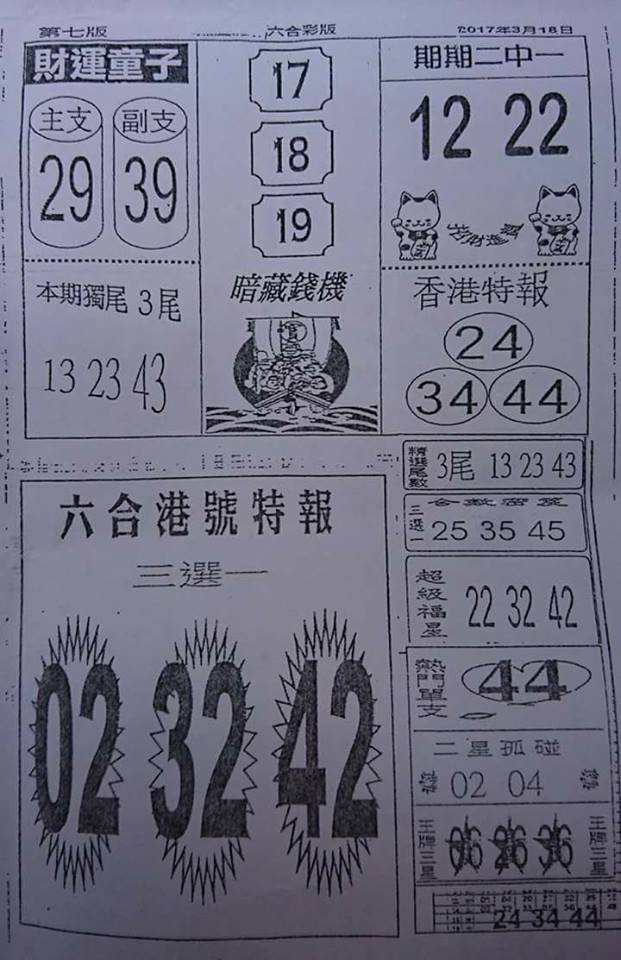 第七版
六合彩版
2017年3月18日
財運童子
主支 副支
29 39
17
18
19
期期二中一
12 22
本期獨尾 3尾
13 23 43
暗藏錢機
香港特報
24
34 44
六合港號特報
三選一
02 32 42
精選尾數
3尾 13 23 43
合數密笈
三選一
25 35 45
超級福星
22 32 42
熱門單支
44
二星孤碰
02 04
王牌三星
06 26 36
王牌三星
24 34 44